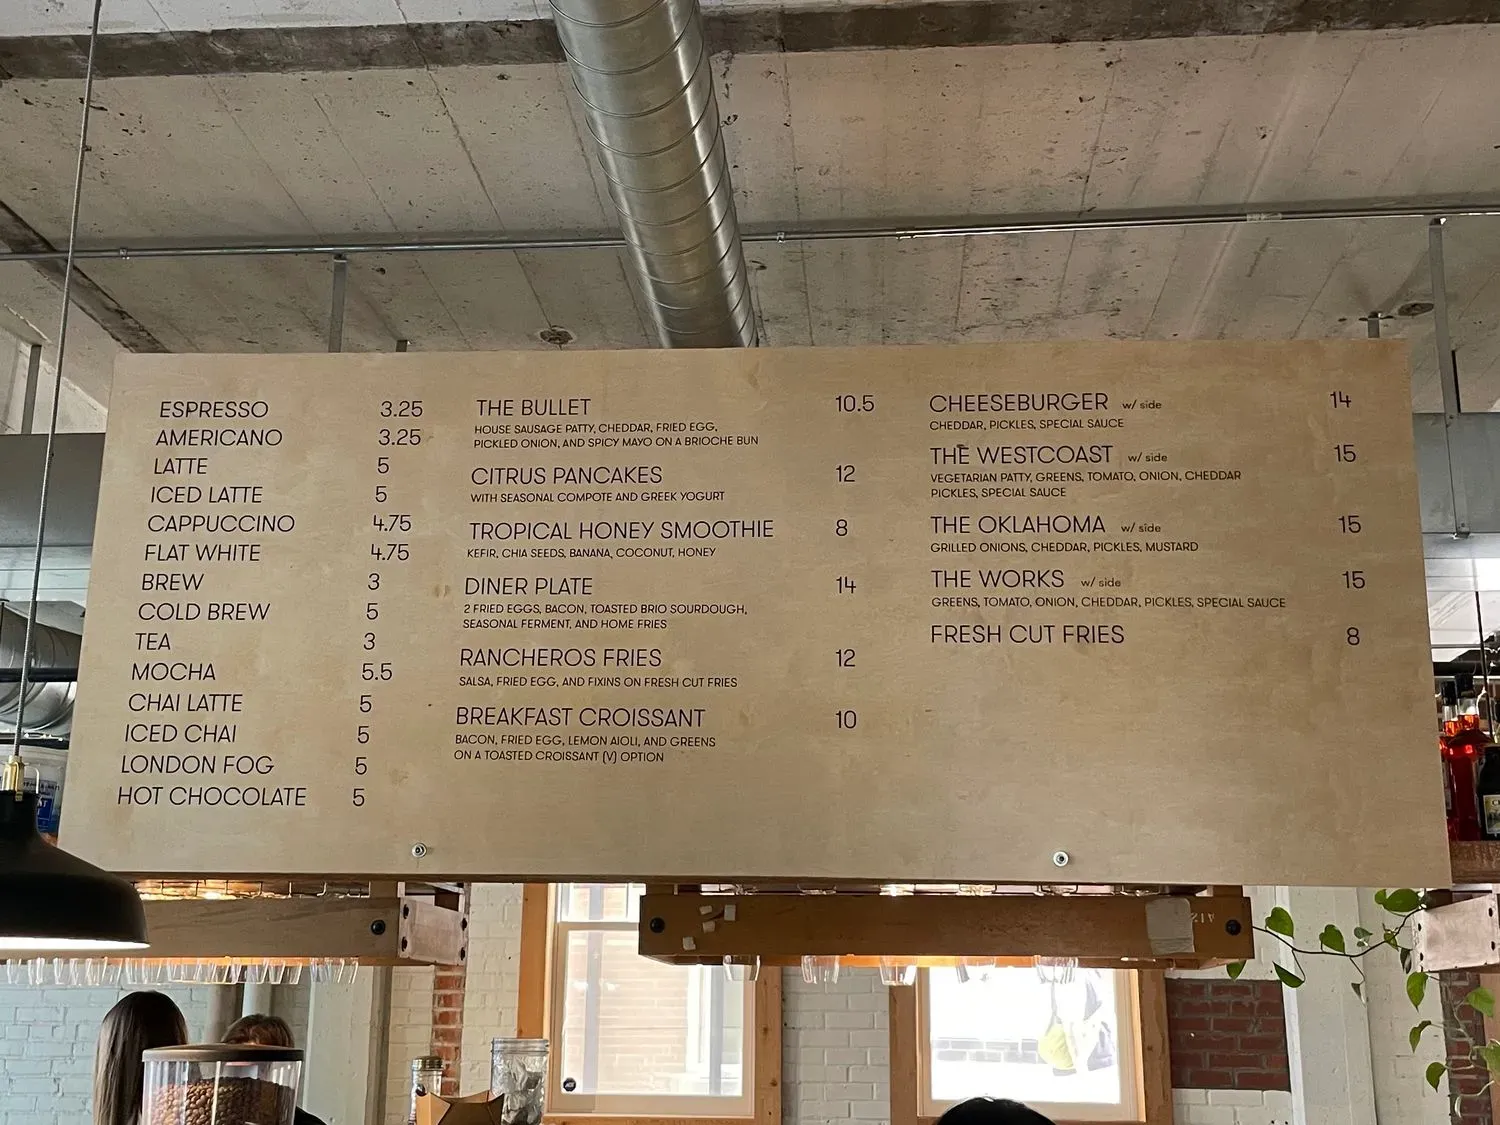 ESPRESSO 3.25
AMERICANO 3.25
LATTE 5
ICED LATTE 5
CAPPUCCINO 4.75
FLAT WHITE 4.75
BREW 3
COLD BREW 5
TEA 3
MOCHA 5.5
CHAI LATTE 5
ICED CHAI 5
LONDON FOG 5
HOT CHOCOLATE 5
THE BULLET 10.5
HOUSE SAUSAGE PATTY, CHEDDAR, FRIED EGG,
PICKLED ONION, AND SPICY MAYO ON A BRIOCHE BUN
CITRUS PANCAKES 12
WITH SEASONAL COMPOTE AND GREEK YOGURT
TROPICAL HONEY SMOOTHIE 8
KEFIR, CHIA SEEDS, BANANA, COCONUT, HONEY
DINER PLATE 14
2 FRIED EGGS, BACON, TOASTED BRIO SOURDOUGH,
SEASONAL FERMENT, AND HOME FRIES
RANCHEROS FRIES 12
SALSA, FRIED EGG, AND FIXINS ON FRESH CUT FRIES
BREAKFAST CROISSANT 10
BACON, FRIED EGG, LEMON AIOLI, AND GREENS
ON A TOASTED CROISSANT (V) OPTION
CHEESEBURGER w/ side 14
CHEDDAR, PICKLES, SPECIAL SAUCE
THE WESTCOAST w/ side 15
VEGETARIAN PATTY, GREENS, TOMATO, ONION, CHEDDAR
PICKLES, SPECIAL SAUCE
THE OKLAHOMA w/ side 15
GRILLED ONIONS, CHEDDAR, PICKLES, MUSTARD
THE WORKS w/ side 15
GREENS, TOMATO, ONION, CHEDDAR, PICKLES, SPECIAL SAUCE
FRESH CUT FRIES 8